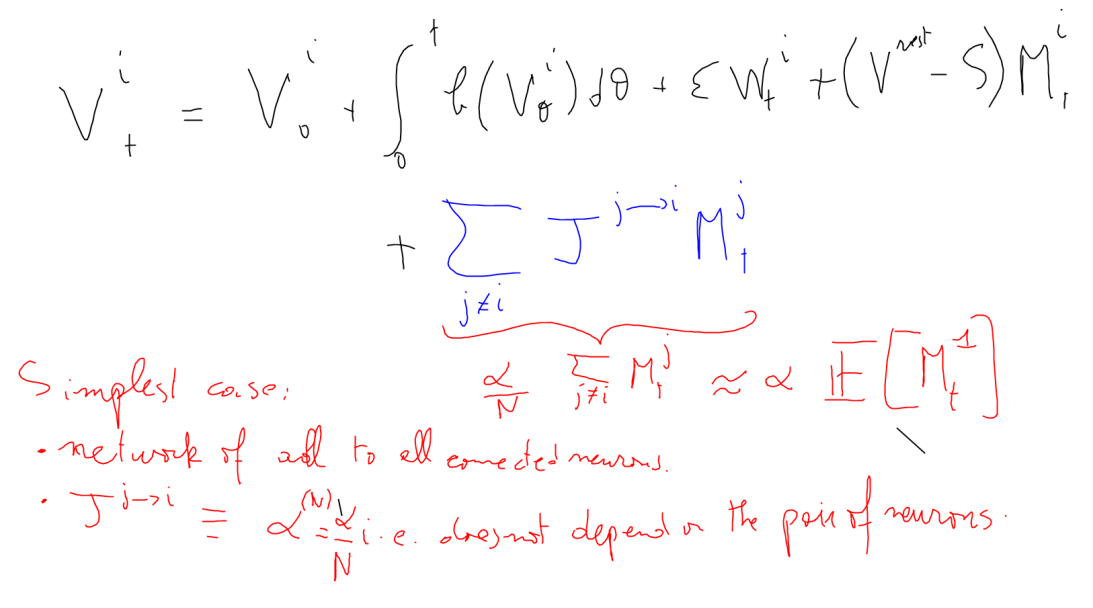 V_t^i = V_0^i + ∫_0^t b(V_θ^i) dθ + ε W_t^i + (V^rest - S) M_t^i
+ Σ_{j≠i} J^{j→i} M_t^j
α/N Σ_{j≠i} M_t^j ≈ α E[M_t^1]
Simplest case:
• network of all to all connected neurons.
• J^{j→i} ≡ α^(N) = α/N i.e. does not depend on the pair of neurons.